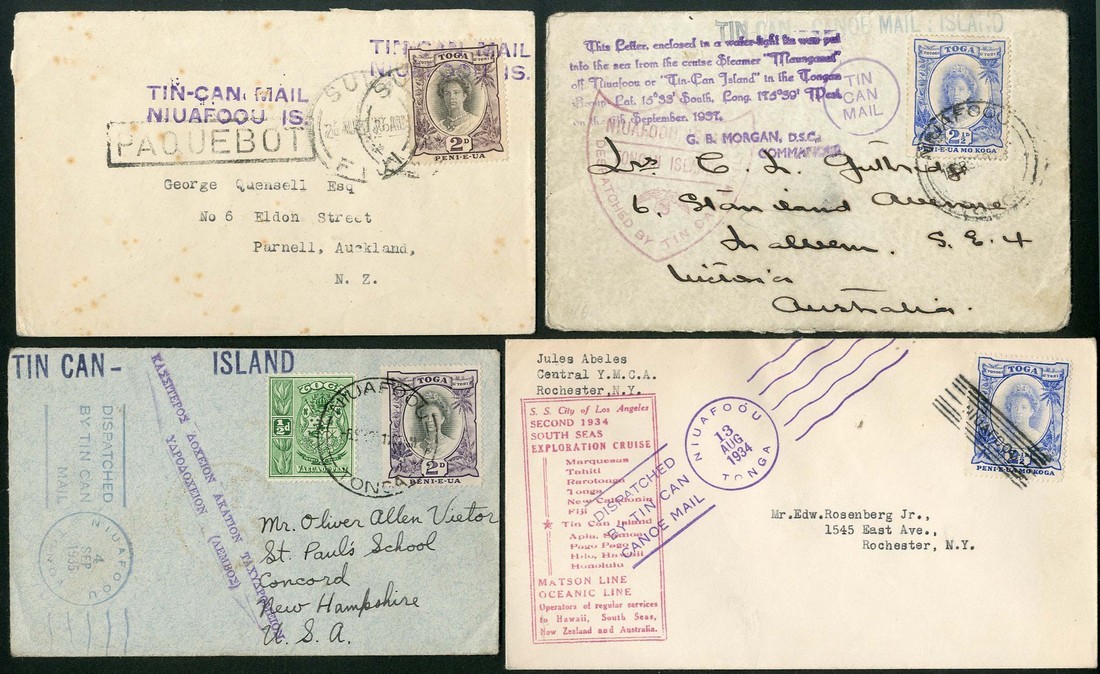 TIN-CAN MAIL
NIUAFOOU IS.
TIN-CAN MAIL
NIUAFOOU IS.
PAQUEBOT
SUVA
FIJI
TOGA
2D
PENI-E-UA
George Quensell Esq
No 6 Eldon Street
Parnell, Auckland,
N. Z.
TIN CAN - CANOE MAIL ISLAND
This Letter, enclosed in a water-tight tin was put
into the sea from the cruise Steamer "Maunganui"
off Niuafoou or "Tin-Can Island" in the Tongan
Group Lat. 15°33' South, Long. 175°39' West
September, 1937.
G. B. MORGAN, D.S.C.
COMMANDER
TIN
CAN
MAIL
NIUAFOOU
TONGAN ISLANDS
DESPATCHED BY TIN CAN
TOGA
2½D
PENI-E-UA MO KOGA
NIUAFOOU
6, Staniland Avenue
Malvern. S.E.4
Victoria
Australia.
TIN CAN - ISLAND
DISPATCHED
BY TIN CAN
MAIL
NIUAFOOU
4
SEP
1935
TONGA
ΚΑΣΣΙΤΕΡΟΣ ΔΟΧΕΙΟΝ ΑΚΑΤΙΟΝ ΤΑΧΥΔΡΟΜΕΙΟΝ
ΥΔΡΟΔΟΧΕΙΟΝ (ΛΕΜΒΟΣ)
TOGA
½d
NIUAFOOU
TONGA
TOGA
2D
PENI-E-UA
Mr. Oliver Allen Vietor
St. Paul's School
Concord
New Hampshire
U.S.A.
Jules Abeles
Central Y.M.C.A.
Rochester, N.Y.
S. S. City of Los Angeles
SECOND 1934
SOUTH SEAS
EXPLORATION CRUISE
Marquesas
Tahiti
Rarotonga
Tonga
New Caledonia
Fiji
Tin Can Island
Apia, Samoa
Pago Pago
Hilo, Hawaii
Honolulu
MATSON LINE
OCEANIC LINE
Operators of regular services
to Hawaii, South Seas,
New Zealand and Australia.
DISPATCHED
BY TIN CAN
CANOE MAIL
NIUAFOÓU
13
AUG
1934
TONGA
TOGA
2½D
PENI-E-UA MO KOGA
Mr.Edw.Rosenberg Jr.,
1545 East Ave.,
Rochester, N.Y.